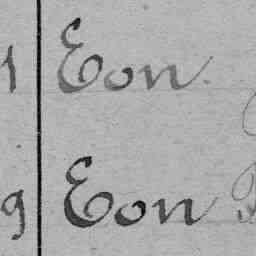 1 Eon.
9 Eon